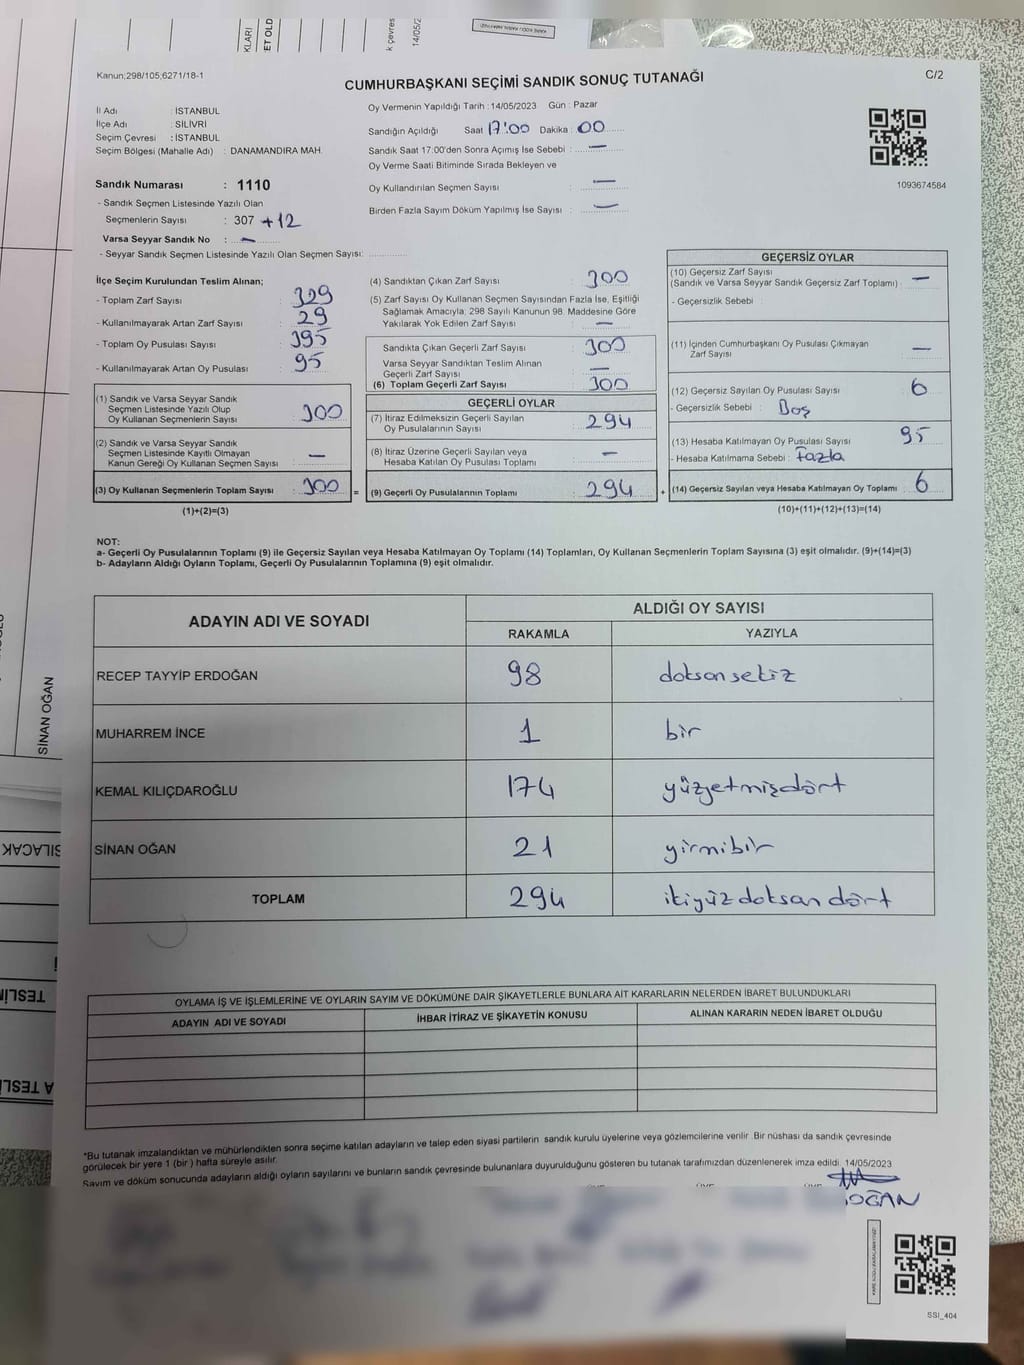 KLARI
ET OLD
k çevres
14/05/2
Kanun;298/105;6271/18-1
C/2
CUMHURBAŞKANI SEÇİMİ SANDIK SONUÇ TUTANAĞI
İl Adı : İSTANBUL
İlçe Adı : SİLİVRİ
Seçim Çevresi : İSTANBUL
Seçim Bölgesi (Mahalle Adı) : DANAMANDIRA MAH.
Oy Vermenin Yapıldığı Tarih : 14/05/2023 Gün : Pazar
Sandığın Açıldığı Saat 17:00 Dakika : 00
Sandık Saat 17:00'den Sonra Açımış İse Sebebi : —
Oy Verme Saati Bitiminde Sırada Bekleyen ve
Oy Kullandırılan Seçmen Sayısı : —
Birden Fazla Sayım Döküm Yapılmış İse Sayısı : —
1093674584
Sandık Numarası : 1110
- Sandık Seçmen Listesinde Yazılı Olan
Seçmenlerin Sayısı : 307 +12
Varsa Seyyar Sandık No : —
- Seyyar Sandık Seçmen Listesinde Yazılı Olan Seçmen Sayısı:
İlçe Seçim Kurulundan Teslim Alınan;
- Toplam Zarf Sayısı : 329
- Kullanılmayarak Artan Zarf Sayısı : 29
- Toplam Oy Pusulası Sayısı : 395
- Kullanılmayarak Artan Oy Pusulası : 95
(1) Sandık ve Varsa Seyyar Sandık
Seçmen Listesinde Yazılı Olup
Oy Kullanan Seçmenlerin Sayısı : 300
(2) Sandık ve Varsa Seyyar Sandık
Seçmen Listesinde Kayıtlı Olmayan
Kanun Gereği Oy Kullanan Seçmen Sayısı : —
(3) Oy Kullanan Seçmenlerin Toplam Sayısı : 300
(1)+(2)=(3)
(4) Sandıktan Çıkan Zarf Sayısı : 300
(5) Zarf Sayısı Oy Kullanan Seçmen Sayısından Fazla İse, Eşitliği
Sağlamak Amacıyla; 298 Sayılı Kanunun 98. Maddesine Göre
Yakılarak Yok Edilen Zarf Sayısı : —
Sandıkta Çıkan Geçerli Zarf Sayısı : 300
Varsa Seyyar Sandıktan Teslim Alınan
Geçerli Zarf Sayısı : —
(6) Toplam Geçerli Zarf Sayısı : 300
GEÇERLİ OYLAR
(7) İtiraz Edilmeksizin Geçerli Sayılan
Oy Pusulalarının Sayısı : 294
(8) İtiraz Üzerine Geçerli Sayılan veya
Hesaba Katılan Oy Pusulası Toplamı : —
= (9) Geçerli Oy Pusulalarının Toplamı : 294 +
GEÇERSİZ OYLAR
(10) Geçersiz Zarf Sayısı
(Sandık ve Varsa Seyyar Sandık Geçersiz Zarf Toplamı) : —
- Geçersizlik Sebebi :
(11) İçinden Cumhurbaşkanı Oy Pusulası Çıkmayan
Zarf Sayısı : —
(12) Geçersiz Sayılan Oy Pusulası Sayısı : 6
- Geçersizlik Sebebi : Boş
(13) Hesaba Katılmayan Oy Pusulası Sayısı : 95
- Hesaba Katılmama Sebebi : Fazla
(14) Geçersiz Sayılan veya Hesaba Katılmayan Oy Toplamı : 6
(10)+(11)+(12)+(13)=(14)
NOT:
a- Geçerli Oy Pusulalarının Toplamı (9) ile Geçersiz Sayılan veya Hesaba Katılmayan Oy Toplamı (14) Toplamları, Oy Kullanan Seçmenlerin Toplam Sayısına (3) eşit olmalıdır. (9)+(14)=(3)
b- Adayların Aldığı Oyların Toplamı, Geçerli Oy Pusulalarının Toplamına (9) eşit olmalıdır.
ADAYIN ADI VE SOYADI
ALDIĞI OY SAYISI
RAKAMLA YAZIYLA
RECEP TAYYİP ERDOĞAN 98 doksansekiz
MUHARREM İNCE 1 bir
KEMAL KILIÇDAROĞLU 174 yüzyetmişdört
SİNAN OĞAN 21 yirmibir
TOPLAM 294 ikiyüzdoksandört
SİNAN OĞAN
SILACAK
TESLİM
A TESLİ
OYLAMA İŞ VE İŞLEMLERİNE VE OYLARIN SAYIM VE DÖKÜMÜNE DAİR ŞİKAYETLERLE BUNLARA AİT KARARLARIN NELERDEN İBARET BULUNDUKLARI
ADAYIN ADI VE SOYADI İHBAR İTİRAZ VE ŞİKAYETİN KONUSU ALINAN KARARIN NEDEN İBARET OLDUĞU
*Bu tutanak imzalandıktan ve mühürlendikten sonra seçime katılan adayların ve talep eden siyasi partilerin sandık kurulu üyelerine veya gözlemcilerine verilir. Bir nüshası da sandık çevresinde
görülecek bir yere 1 (bir) hafta süreyle asılır.
Sayım ve döküm sonucunda adayların aldığı oyların sayılarını ve bunların sandık çevresinde bulunanlara duyurulduğunu gösteren bu tutanak tarafımızdan düzenlenerek imza edildi. 14/05/2023
OĞAN
SSI_404